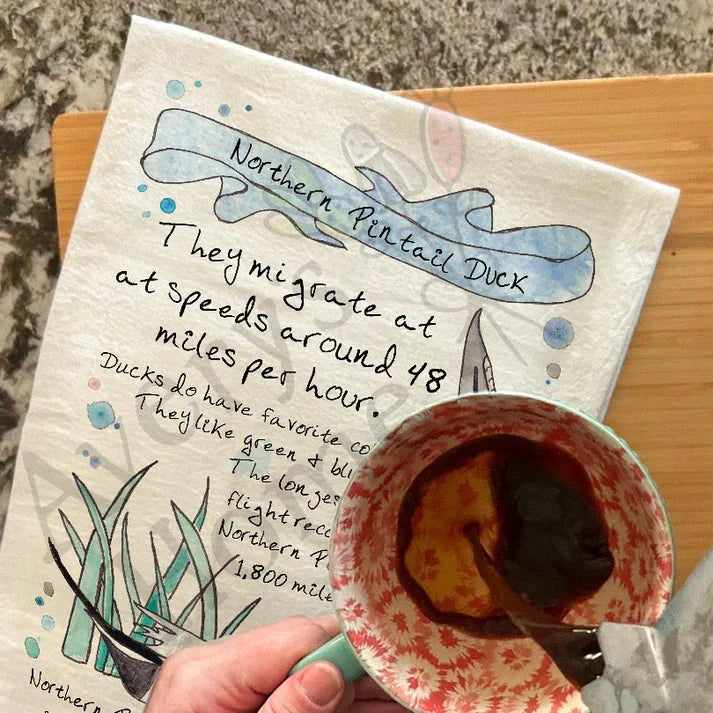 Northern Pintail Duck
They migrate at
at speeds around 48
miles per hour.
Ducks do have favorite co
They like green + bl
The longes
flight reco
Northern P
1,800 mil
Northern
Avery's